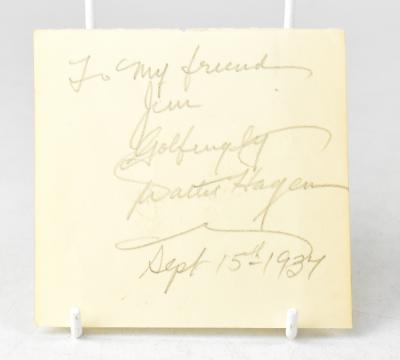 To My friend
Jim
Golfingly
Walter Hagen
Sept 15th-1937